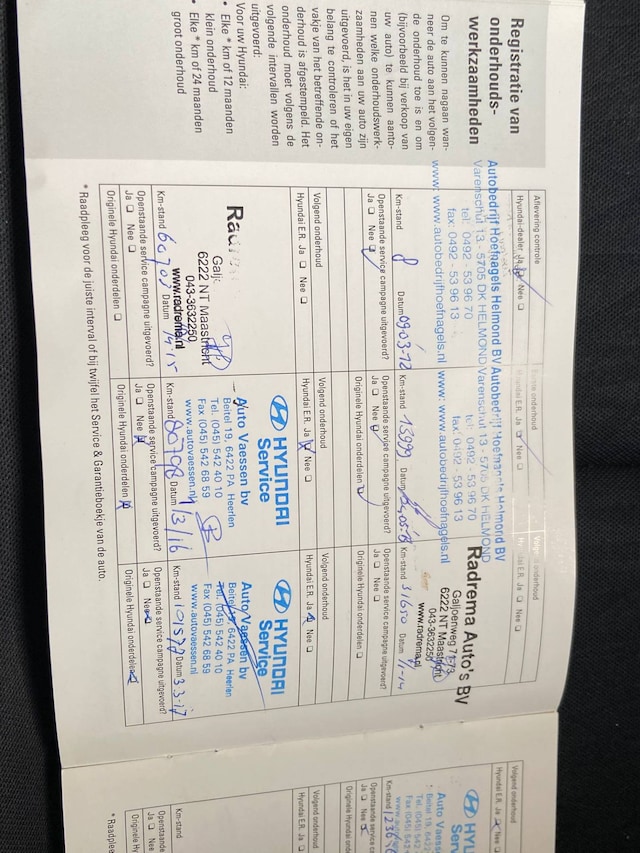 Registratie van
onderhouds-
werkzaamheden
Om te kunnen nagaan wan-
neer de auto aan het volgen-
de onderhoud toe is en om
(bijvoorbeeld bij verkoop van
uw auto) te kunnen aanto-
nen welke onderhoudswerk-
zaamheden aan uw auto zijn
uitgevoerd, is het in uw eigen
belang te controleren of het
vakje van het betreffende on-
derhoud is afgestempeld. Het
onderhoud moet volgens de
volgende intervallen worden
uitgevoerd:
Voor uw Hyundai:
• Elke * km of 12 maanden
klein onderhoud
• Elke * km of 24 maanden
groot onderhoud
Aflevering controle
Hyundai-dealer Ja Nee
Autobedrijf Hoefnagels Helmond BV
Varenschut 13 - 5705 DK HELMOND
tel: 0492 - 53 96 70
fax: 0492 - 53 96 13
www: www.autobedrijfhoefnagels.nl
Km-stand 8 Datum 09-03-12
Openstaande service campagne uitgevoerd?
Ja Nee
onderhoud
Hyundai E.R. Ja Nee
Autobedrijf Hoefnagels Helmond BV
Varenschut 13 - 5705 DK HELMOND
tel: 0492 - 53 96 70
fax: 0492 - 53 96 13
www: www.autobedrijfhoefnagels.nl
Km-stand 15999 Datum
Openstaande service campagne uitgevoerd?
Ja Nee
Originele Hyundai onderdelen
onderhoud
E.R. Ja Nee
Radrema Auto's BV
Galjoenweg 71-73
6222 NT Maastricht
043-3632250
www.radrema.nl
Km-stand 31650 Datum
Openstaande service campagne uitgevoerd?
Ja Nee
Originele Hyundai onderdelen
Volgend onderhoud
Hyundai E.R. Ja Nee
6222 NT Maastricht
043-3632250
www.radrema.nl
Km-stand Datum
Openstaande service campagne uitgevoerd?
Ja Nee
Originele Hyundai onderdelen
Volgend onderhoud
Hyundai E.R. Ja Nee
HYUNDAI
Service
Auto Vaessen bv
Beitel 19, 6422 PA Heerlen
Tel. (045) 542 40 10
Fax (045) 542 68 59
www.autovaessen.nl
Km-stand 80798 Datum 1/3/16
Openstaande service campagne uitgevoerd?
Ja Nee
Originele Hyundai onderdelen
Volgend onderhoud
Hyundai E.R. Ja Nee
HYUNDAI
Service
Auto Vaessen bv
Beitel 19, 6422 PA Heerlen
Tel. (045) 542 40 10
Fax (045) 542 68 59
www.autovaessen.nl
Km-stand Datum 3-3-17
Openstaande service campagne uitgevoerd?
Ja Nee
Originele Hyundai onderdelen
* Raadpleeg voor de juiste interval of bij twijfel het Service & Garantieboekje van de auto.
Volgend onderhoud
Hyundai E.R. Ja Nee
Auto Vaessen
Beitel 19, 6422
Tel. (045) 542
Fax (045) 542
Km-stand
Openstaande service
Ja Nee
Originele Hyundai
Volgend onderhoud
Hyundai E.R. Ja Nee
Km-stand
Openstaande service
Ja Nee
Originele Hyundai